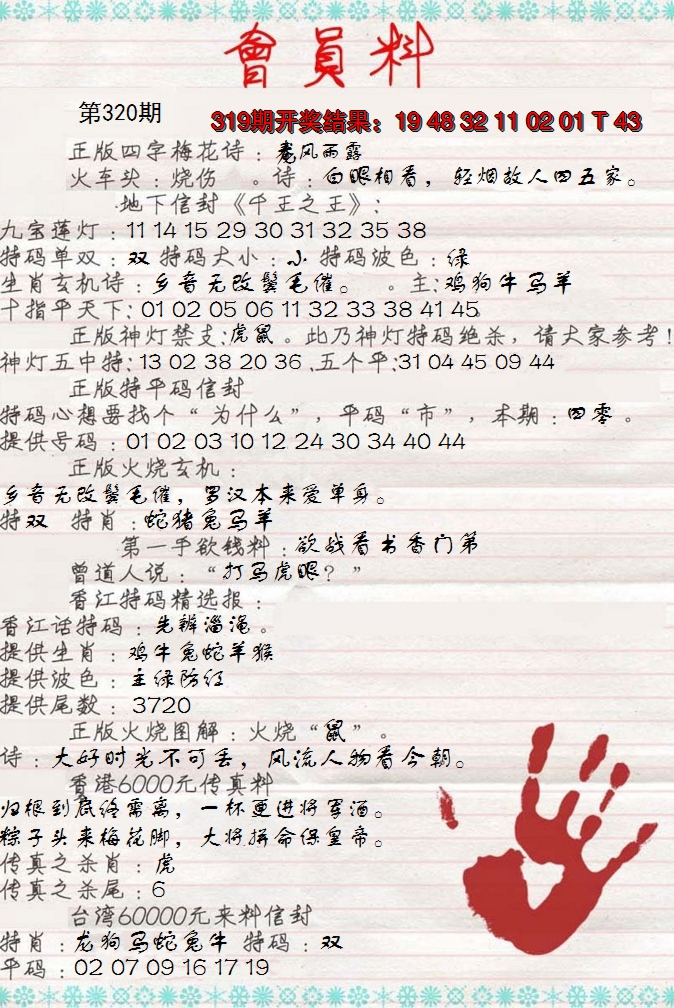 會員料
第320期
319期开奖结果：19 48 32 11 02 01 T 43
正版四字梅花诗：春风雨露
火车头：烧伤 。诗：白眼相看，轻烟故人四五家。
地下信封《千王之王》：
九宝莲灯：11 14 15 29 30 31 32 35 38
特码单双：双 特码大小：小 特码波色：绿
生肖玄机诗：乡音无改鬓毛催。 。主：鸡狗牛马羊
十指平天下：01 02 05 06 11 32 33 38 41 45
正版神灯禁支：虎鼠。此乃神灯特码绝杀，请大家参考！
神灯五中特：13 02 38 20 36 .五个平：31 04 45 09 44
正版特平码信封
特码心想要找个“为什么”，平码“市”，本期：四零。
提供号码：01 02 03 10 12 24 30 34 40 44
正版火烧玄机：
乡音无改鬓毛催，罗汉本来爱单身。
特双 特肖：蛇猪兔马羊
第一手欲钱料：欲战看书香门第
曾道人说：“打马虎眼？”
香江特码精选报：
香江话特码：先辨淄渑。
提供生肖：鸡牛兔蛇羊猴
提供波色：主绿防红
提供尾数：3720
正版火烧图解：火烧“鼠”。
诗：大好时光不可丢，风流人物看今朝。
香港6000元传真料
归根到底终需离，一杯更进将军酒。
粽子头来梅花脚，大将拼命保皇帝。
传真之杀肖：虎
传真之杀尾：6
台湾60000元来料信封
特肖：龙狗马蛇兔牛 特码：双
平码：02 07 09 16 17 19